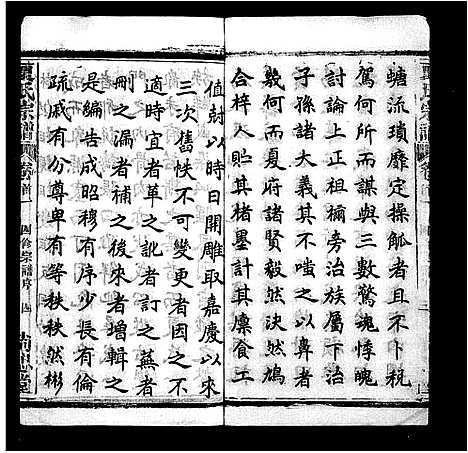 蟾流瑣靡定操觚者且不卜稅
駕何所而謀與三數驚魂悸魄
討論上正祖禰旁治族屬下治
子孫諸大義其不嗤之以鼻者
幾何而夏府諸賢毅然決然鳩
合梓人貽其楮墨計其廩食工
值尅以時日開雕取嘉慶以來
三次舊帙不可變更者因之不
適時宜者革之訛者訂之蕪者
刪之漏者補之後來者增輯之
是編告成昭穆有序少長有倫
疏戚有分尊卑有等秩秩然彬
氏宗譜
卷首
四修宗譜序
四